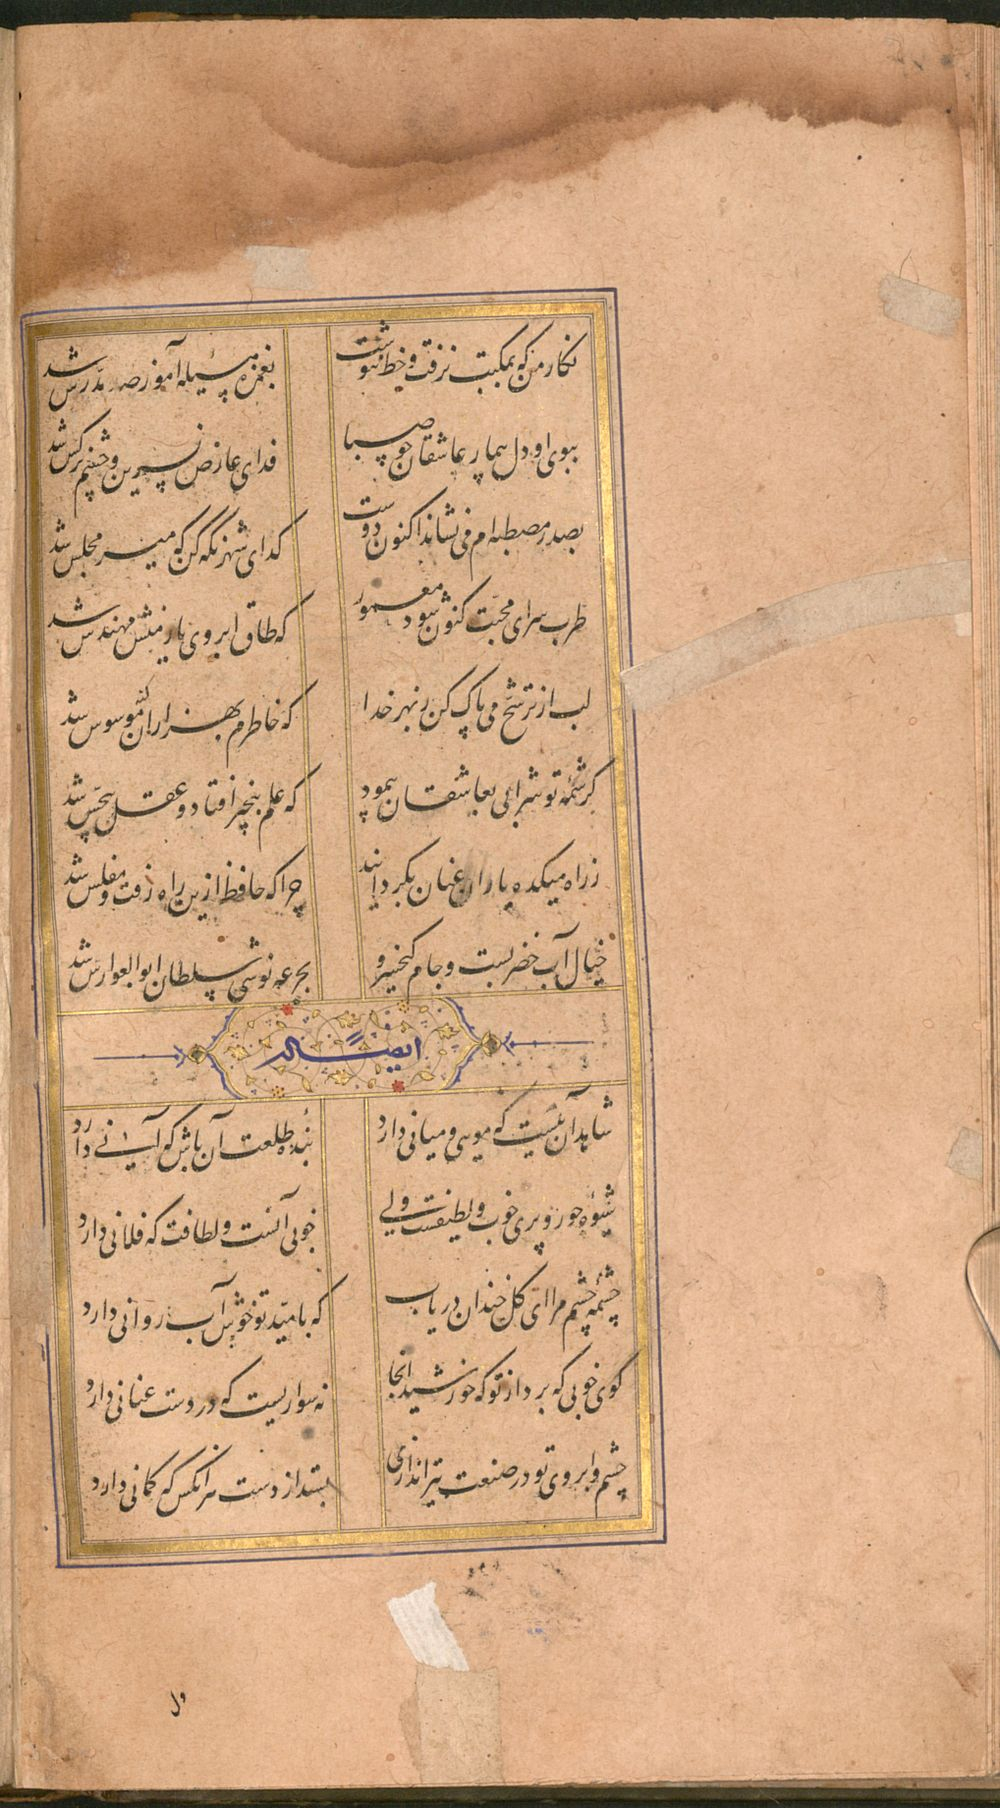 نکار من که بمکتب نرفت و خط ننوشت بغمزه مسئله آموز صد مدرس شد
ببوی او دل بیمار عاشقان چو صبا فدای عارض نسرین و چشم نرکس شد
بصدر مصطبه ام می نشاند اکنون دوست کدای شهر نکه کن که میر مجلس شد
طرب سرای محبت کنون شود معمور که طاق ابروی یار منش مهندس شد
لب از ترشح می پاک کن ز بهر خدا که خاطرم بهزاران کنه موسوس شد
کرشمه تو شرابی بعاشقان پیمود که علم بیخبر افتاد و عقل بیحس شد
ز راه میکده یاران عنان بکردانید چرا که حافظ ازین راه رفت و مفلس شد
خیال آب خضر بست و جام کیخسرو بجرعه نوشی سلطان ابوالفوارس شد
ایضاً له
شاهد آن نیست که مویی و میانی دارد بنده طلعت آن باش که آنی دارد
شیوه حور و پری خوب و لطیفست ولی خوبی آنست و لطافت که فلانی دارد
چشمه چشم مرا ای کل خندان دریاب که بامید تو خوش آب روانی دارد
کوی خوبی که برد از تو که خورشید انجا نه سواریست که در دست عنانی دارد
چشم و ابروی تو در صنعت تیراندازی بستد از دست هر انکس که کمانی دارد